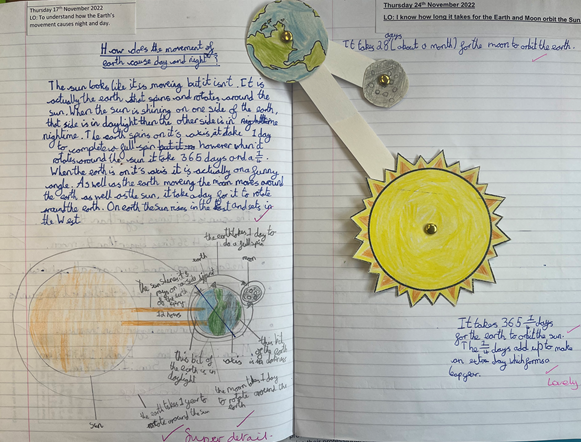 Thursday 17th November 2022
LO: To understand how the Earth's
movement causes night and day.
How does the movement of
earth cause day and night?
The sun looks like it is moving but it isn't. It is
actually the earth that spins and rotates around the
sun. When the sun is shining on one side of the earth,
that side is in daylight then the other side is in nighttime
nightime. The earth spins on it's axis it take 1 day
to complete a full spin but it however when it
rotates around the sun it take 365 days and a 1/4.
When the earth is on it's axis it is actually on a funny
angle. As well as the earth moving the moon moves around
the earth as well as the sun, it takes a day for it to rotate
around the earth. On earth the sun rises in the East and sets in
the West.
the earth takes 1 day to
do a full spin
earth
moon
12 hours
this bit of
the earth is in
daylight
axis
this bit
of the earth
is in darkness
the moon takes 1 day
to rotate around the
earth
the earth takes 1 year to
rotate around the sun
sun
Super detail.
Thursday 24th November 2022
LO: I know how long it takes for the Earth and Moon orbit the Sun
days
It takes 28 (about a month) for the moon to orbit the earth.
It takes 365 1/4 days
for the earth to orbit the sun.
The 1/4 days add up to make
an extra day which forms a
leap year.
Lovely